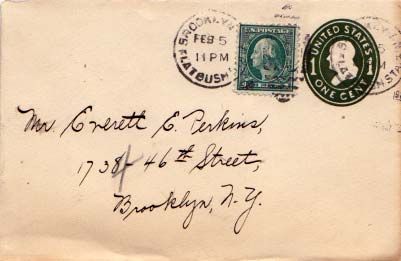 BROOKLYN
FEB 5
11 PM
FLATBUSH
U.S. POSTAGE
UNITED STATES
1 1
ONE CENT
Mr. Everett E. Perkins,
1738 - 46th Street,
Brooklyn, N.Y.